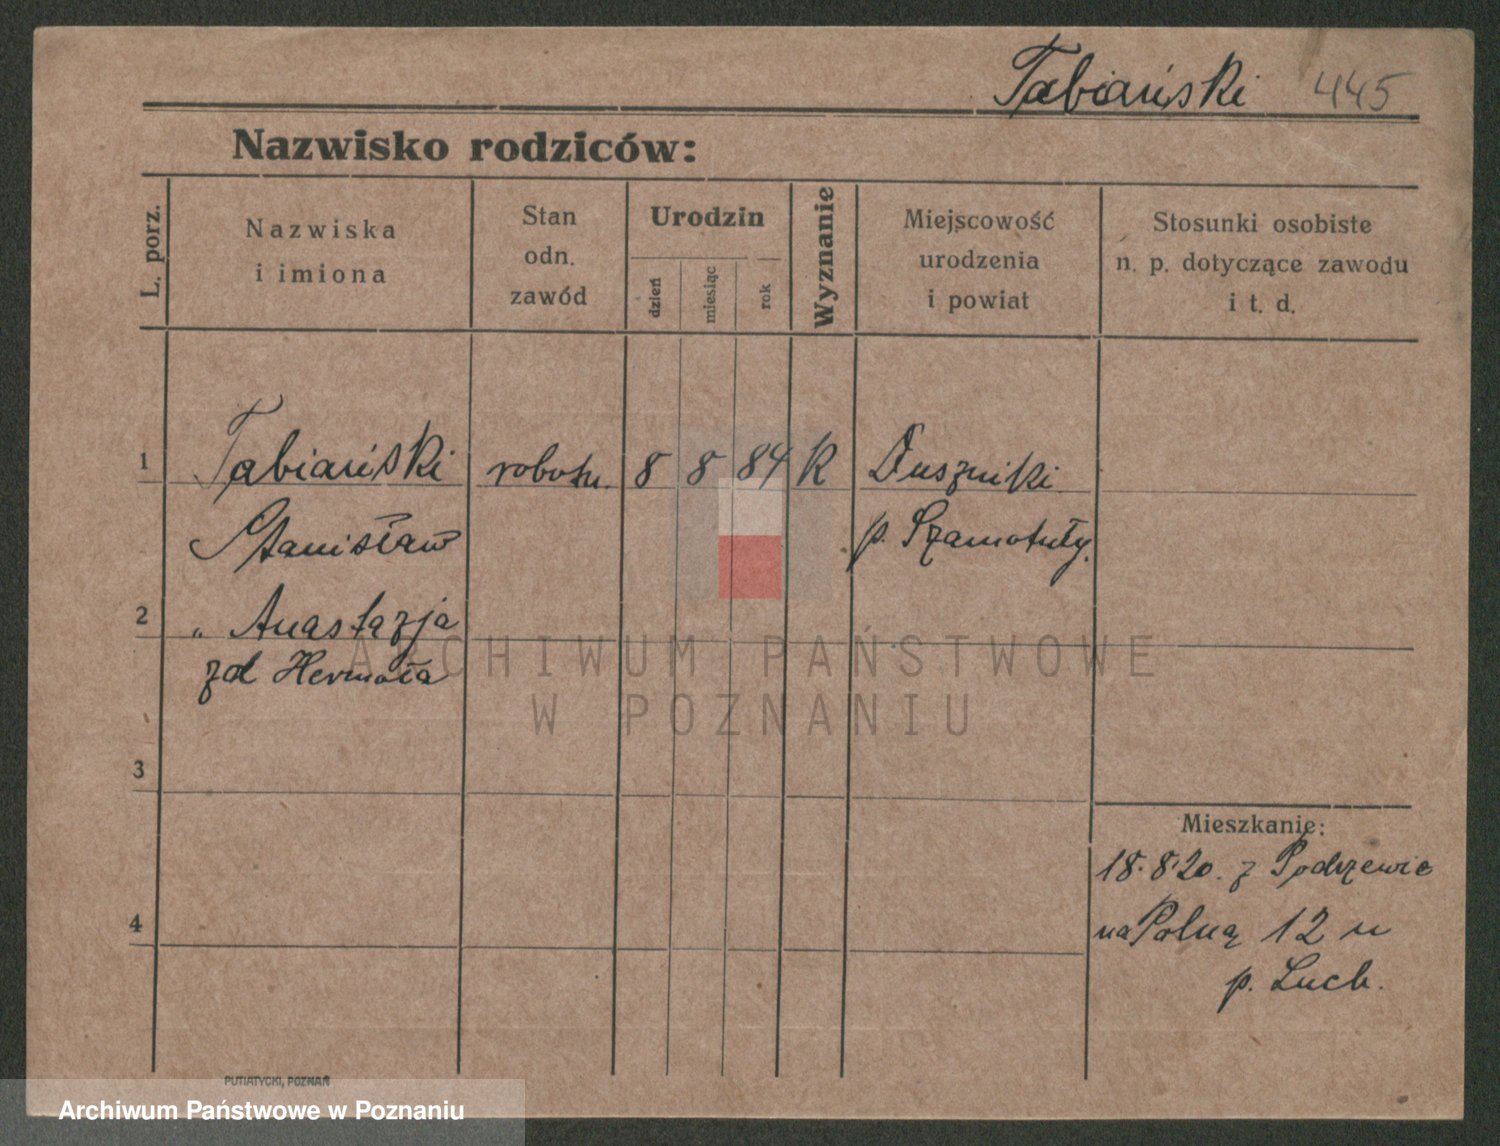 Tabiański 445
Nazwisko rodziców:
L. porz.
Nazwiska
i imiona
Stan
odn.
zawód
Urodzin
dzień
miesiąc
rok
Wyznanie
Miejscowość
urodzenia
i powiat
Stosunki osobiste
n. p. dotyczące zawodu
i t. d.
1 Tabiański robotn. 8 8 84 K Duszniki
Stanisław p. Szamotuły.
2 „ Anastazja
zd Hermoła
ARCHIWUM PAŃSTWOWE
W POZNANIU
3
Mieszkanie:
18.8.20. z Podrzewie
4 na Polną 12 u
p. Luch.
PUTIATYCKI, POZNAŃ
Archiwum Państwowe w Poznaniu